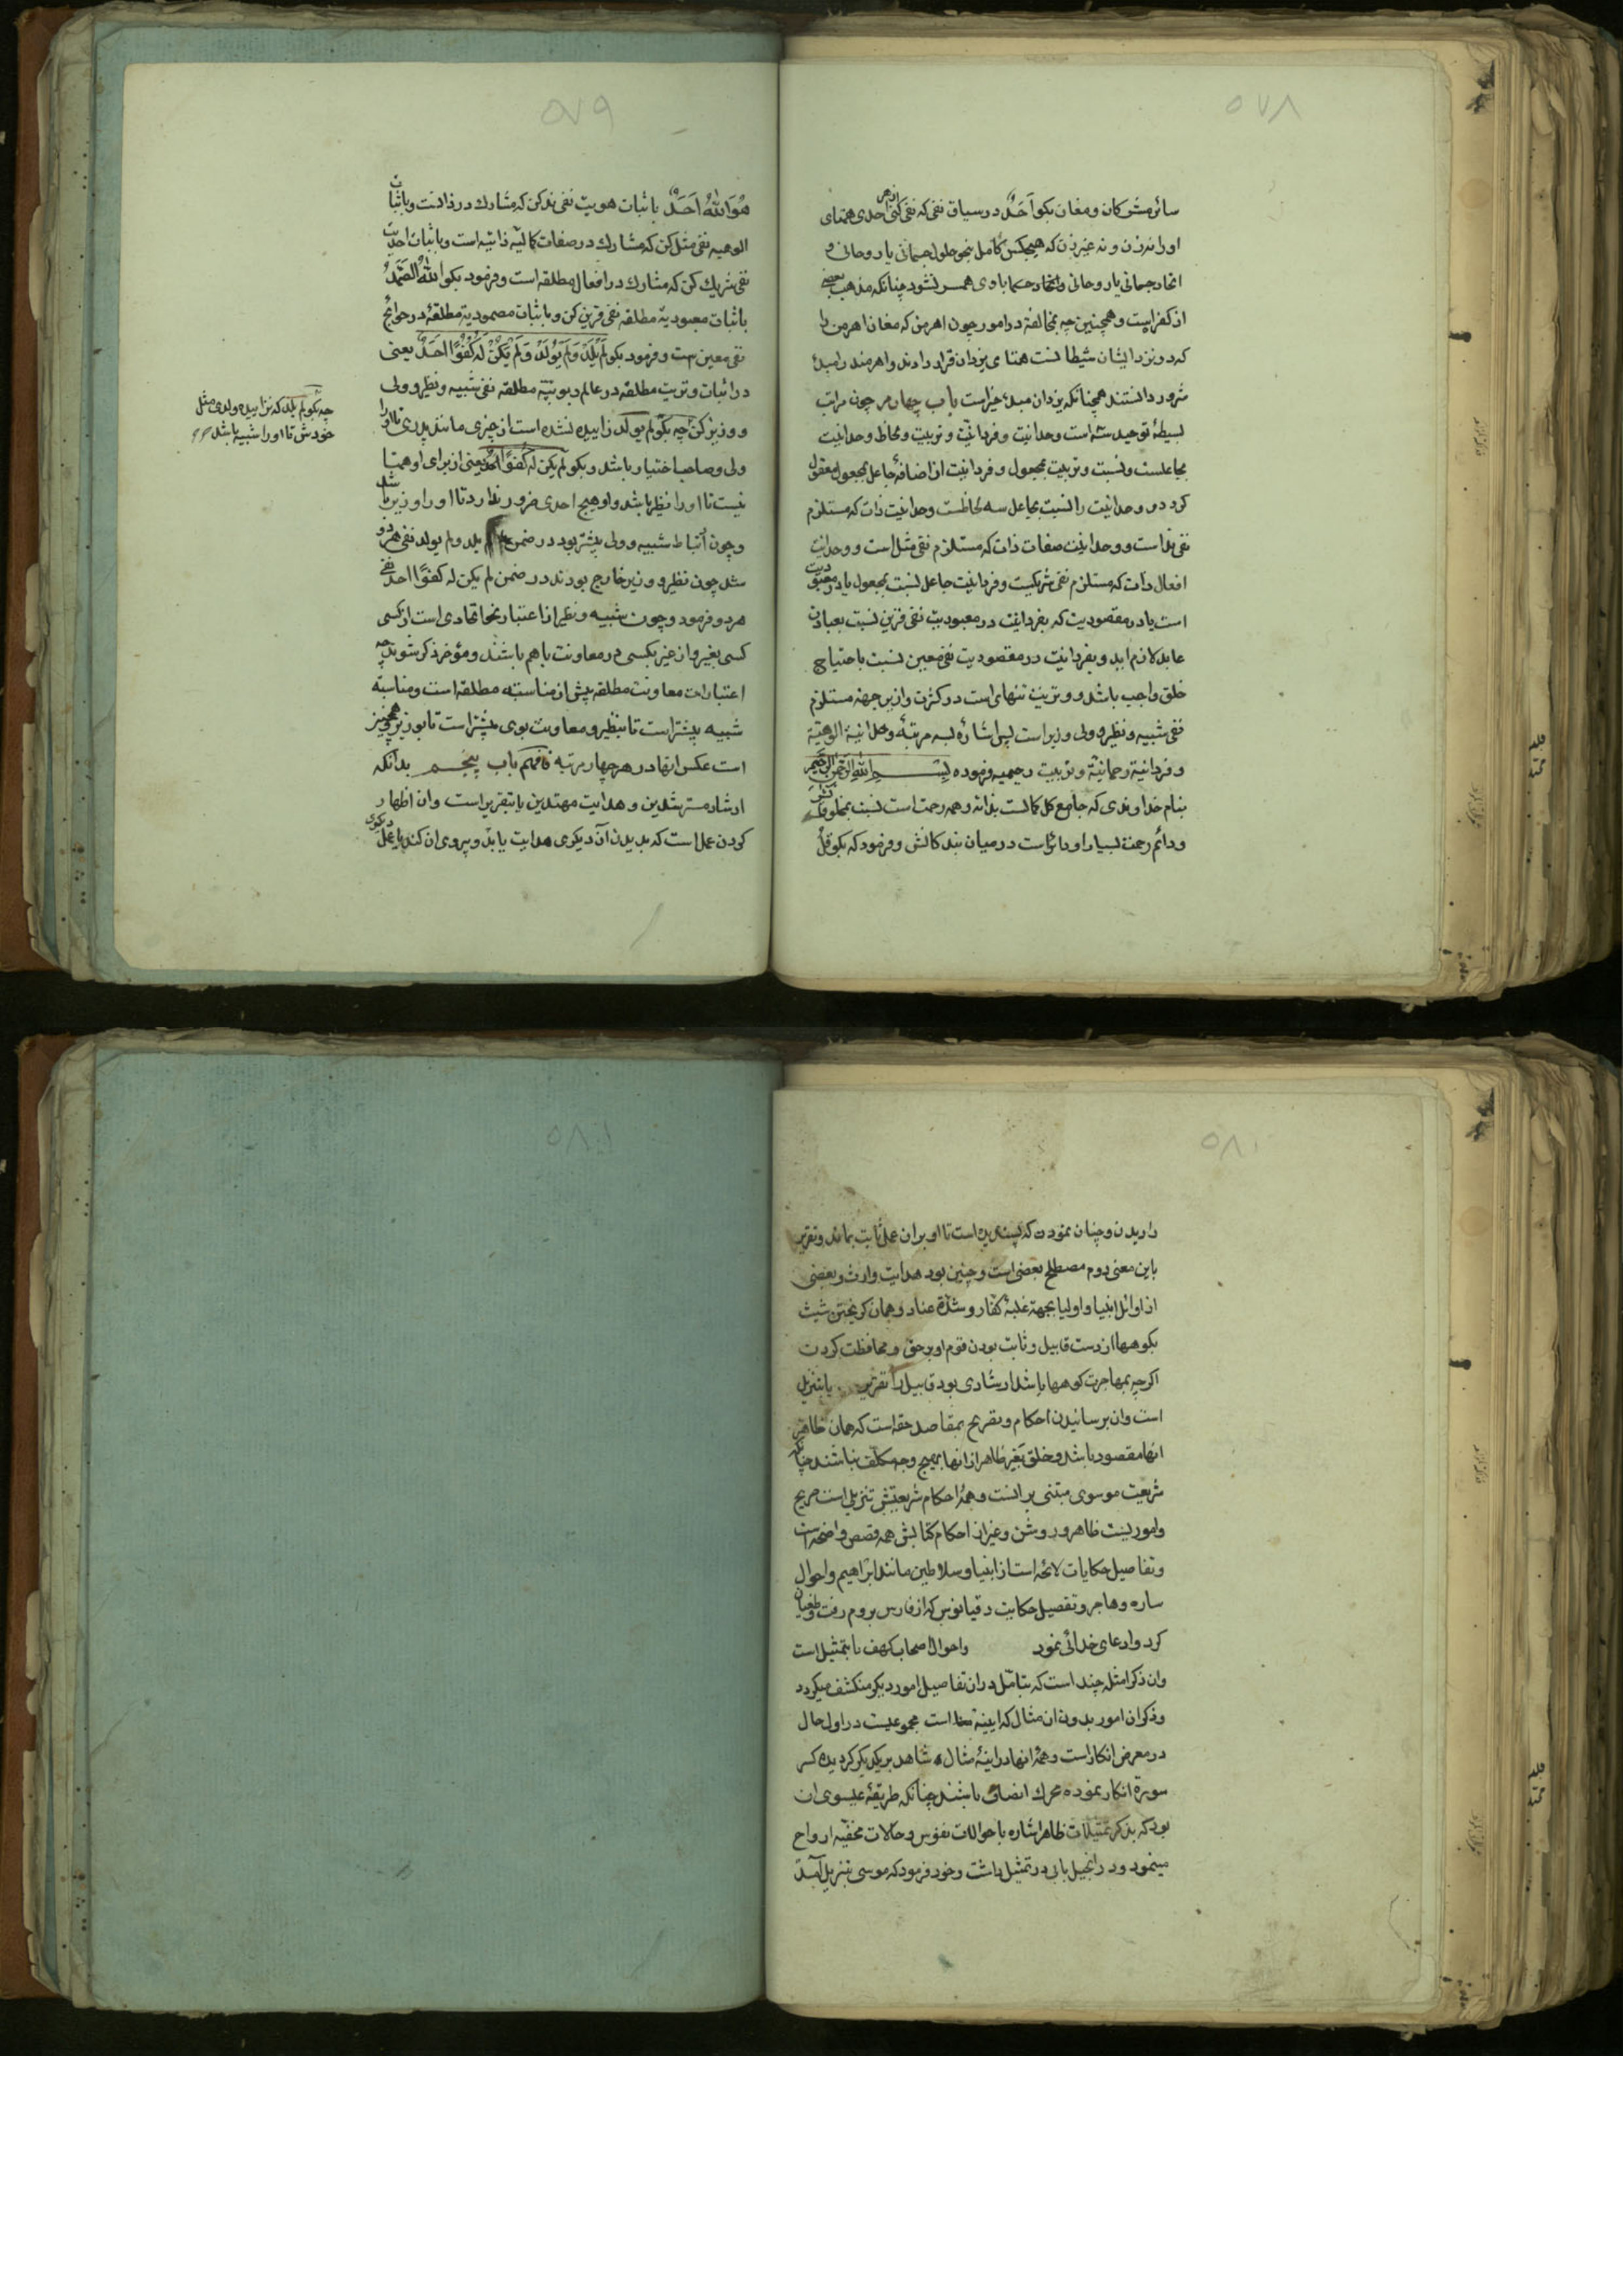 ۵۷۸
سائر مشرکان و مغان بکو اَحَدٌ در سیاق نفی که نفی کنی از هر احدی همتای
او را نه زن و نه غیر زن که هیچکس کامل بنحو حلول جسمانی یا روحانی و
اتحاد جسمانی یا روحانی و اتحاد حکما با وی همسر نشود چنانکه مذهب بعضی
از کفر است و همچنین چه مخالفة در امور چون اهرمن که مغان اهرمن را
که در نزد ایشان شیطانست همتای یزدان قرار دادند و اهرمند را مبدء
شرور دانستند همچنانکه یزدان مبدء خیراست باب چهارم چون مراتب
بسیطهٔ توحید سه است وحدانیت و فردانیت و وتریت و ملحاظ وحدانیت
بجاعلست و نسبت وتریت بمجعول و فردانیت از اضافهٔ جاعل بمجعول معقول
کردد و وحدانیت را نسبت بجاعل سه لحاظست وحدانیت ذات که مستلزم
نفی نداست و وحدانیت صفات ذات که مستلزم نفی مثل است و وحدانیت
افعال ذات که مستلزم نفی شریکست و فردانیت جاعل نسبت بمجعول یا در معبودیت
است یا در مقصودیت که بفردانیت در معبودیت نفی قرین نسبت بعبادت
عابد لازم اید و بفردانیت در مقصودیت نفی معین نسبت باحتیاج
خلق واجب باشد و وتریت تنهائی است در کثرت و ازین جهة مستلزم
نفی شبیه و نظیر و ولی و وزیر است پس اشاره بسه مرتبهٔ وحدانیة الوهیّة
و فردانیة رحمانیّة و وتریت رحیمیه فرموده بِسْمِ اللهِ الرَّحْمنِ الرَّحیمِ
بنام خداوندی که جامع کل کمالست بذاته و همه رحمت است نسبت بمخلوقاتش
و دائم رحمة بسیار او دائر است در میان بندکانش و فرمود که بکو قُلْ
۵۷۹
هُوَ اللهُ اَحَدٌ باثبات هویت نفی ند کن که مشارک در ذاتست و باثبات
الوهیه نفی مثل کن که مشارک در صفات کمالیّه ذاتیه است و باثبات احدیت
نفی شریک کن که مشارک در افعال مطلقه است و فرمود بکو اللهُ الصَّمَدُ
باثبات معبودیة مطلقه نفی قرین کن و باثبات مصمودیة مطلقهٔ در حوائج
نفی معین ست و فرمود بکو لَمْ یَلِدْ وَ لَمْ یُولَدْ وَ لَمْ یَکُنْ لَهُ کُفُوًا اَحَدٌ یعنی
در اثبات وتریت مطلقه در عالم ربوبیّه مطلقه نفی شبیه و نظیر و ولی
و وزیر کن چه بکو لم یولد زاییده نشده است از چیزی مانند پدری تا او را
ولی و صاحب اختیار باشد و بکو لم یکن له کفوًا احدٌ یعنی از برای او همتا
نیست تا او را نظیر باشد و او هیچ احدی ضرور ندارد تا او را وزیر باشد
و چون ارتباط شبیه و ولی بیشتر بود در ضمن لم یلد و لم یولد نفی هر دو
شد چون نظیر و وزیر خارج بودند در ضمن لم یکن له کفوًا احد نفی
هر دو فرمود و چون شبیه و نظیر از اعتبار نحا اتحادی است از کسی
کسی بغیر و از غیر بکسی در معاونت با هم باشند و مؤخر ذکر شوند چه
اعتبارات معاونت مطلقه پیش از مناسبه مطلقه است و مناسبة
شبیه بیشتر است تا بنظیر و معاونت بوی بیشتر است تا بوزیر همچنین
است عکس انها در هر چهار مرتبه فافهم باب پنجم بدانکه
ارشاد مسترشدین و هدایت مهتدین یا بتقریر است و ان اظهار
کردن عمل است که بدیدن آن دیکری هدایت یابد و پیروی ان کند یا عمل دیکری
چه بکو لم یلد که نزاییده ولدی مثل
خودش تا او را شبیه باشد
۵۸۰
را دیدن و چنان نمودن که پسندیده است تا او بران عمل ثابت بماند و تقریر
باین معنی دوم مصطلح بعضی است و چنین بود هدایت وارث و بعضی
از اوائل انبیا و اولیا بجهة غلبهٔ کفار و شدّة عناد و همان کریختن شیث
بکوهها از دست قابیل و ثابت بودن قوم او بر حق و محافظت کردن
اکرچه بمهاجرت کوهها باشد ارشادی بود قابیل را تقریر یا بتنزیل
است و ان برسانیدن احکام و تصریح بمقاصد حقه است که همان ظاهر
انها مقصود باشد و خلق بغیر ظاهر از انها بهیچ وجه مکلف نباشند چنانکه
شریعت موسوی مبتنی بر انست و همهٔ احکام شریعتش تنزیلی است صریح
و امور بیّنت ظاهر و روشن و غیر از احکام کتابش همه قصص واضحه است
و تفاصیل حکایات لائحه است از انبیا و سلاطین مانند ابراهیم و احوال
ساره و هاجر و تفصیل حکایت دقیانوس که از فارس بروم رفت و طغیان
کرد و ادعای خدائی نمود و احوال اصحاب کهف یا بتمثیل است
و ان ذکر امثله چند است که بتأمّل در ان تفاصیل امور دیکر منکشف میکردد
و ذکر ان امور بدون ان مثال که ایینهٔ است مجموعیست در اول حال
در معرض انکار است و همهٔ انها در ایینهٔ مثال شاهد بر یکدیکر کردیده کسر
سورة انکار نموده محرک انصاف باشند چنانکه طریقهٔ عیسوی ان
بود که بذکر تمثیلات ظاهر اشاره باحوالات نفوس و حالات مخفیّه ارواح
مینمود و در انجیل بابی در تمثیل داشت و خود فرمود که موسی بتنزیل آمد
۵۸۱